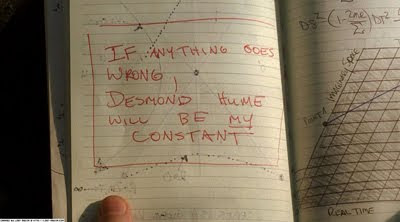 IF ANYTHING GOES
WRONG,
DESMOND HUME
WILL BE MY
CONSTANT
REAL TIME